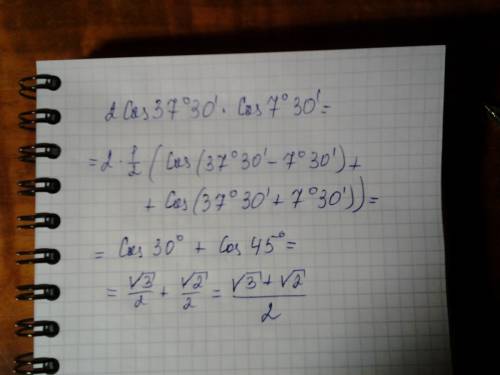 2Cos37°30'·Cos7°30'=
=2·1/2(Cos(37°30'-7°30')+
+Cos(37°30'+7°30'))=
=Cos30°+Cos45°=
=√3/2+√2/2=(√3+√2)/2